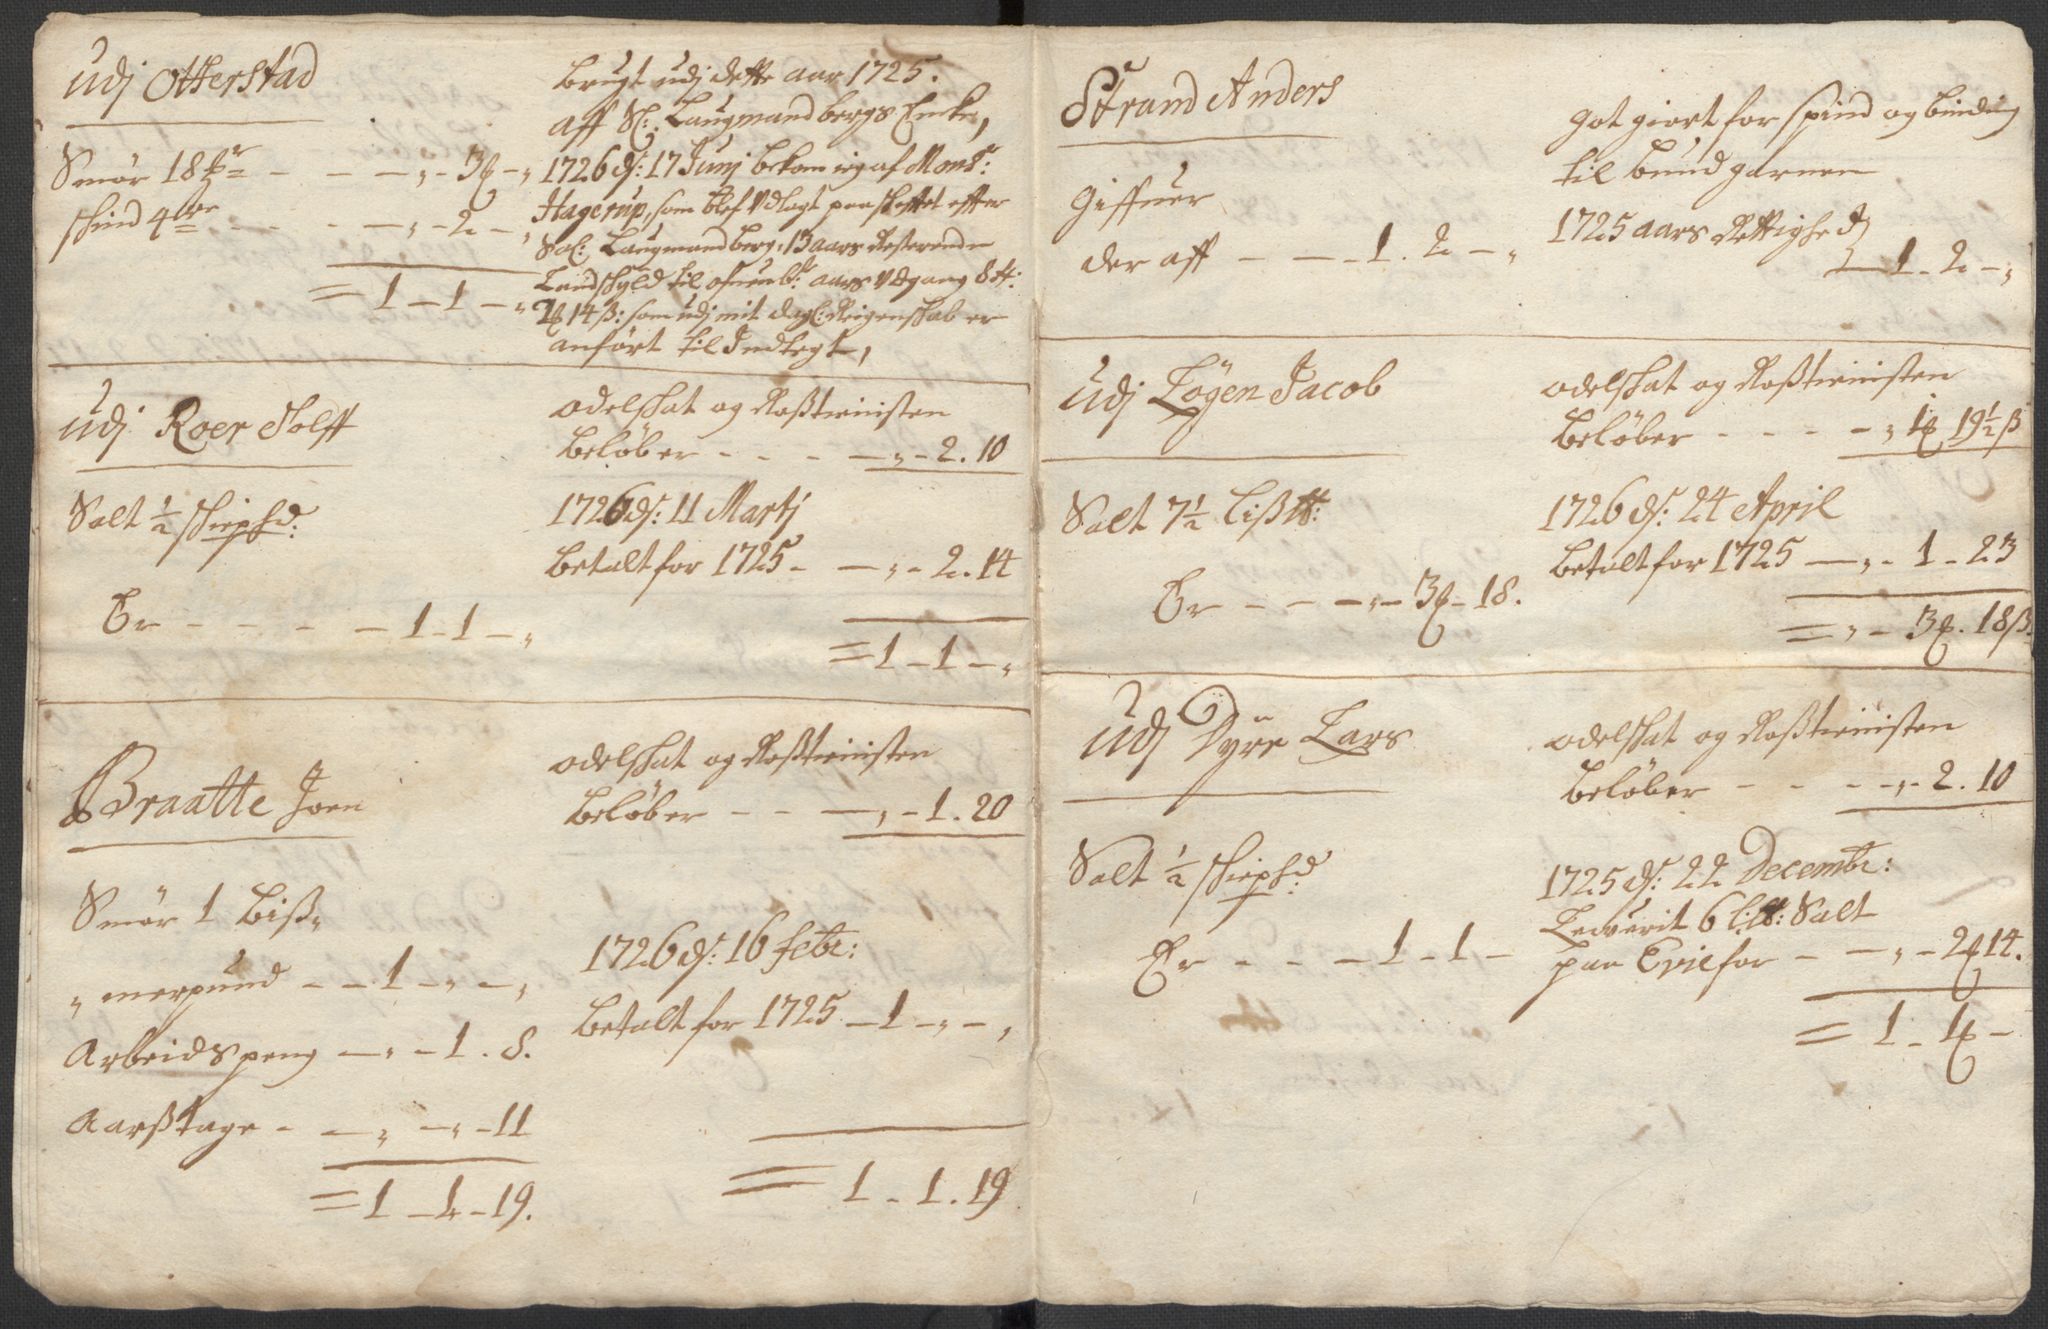 Udj Otterstad
Smör 18 – – – „ – 3 – „
schind 4 – – – – „ – 2 – „
= 1 – 1 – „
brugt udj dette aar 1725.
aff Sl: Laugmand bergs Encke,
1726 ds: 17 Junj bekom ieg af Monsr:
Hagerup, som blef Udlagt paa skifftet effter
Sal: Laugmand berg, 13 aars Resterende
Landskyld til aars Udgang 8
14 ß: som udj mit Reigenskab er
anført til Indtegt,
Udj Roer Rolff
Salt ½ schiephd:
Er – – – – – 1 – 1 – „
odelskat og Roßtienisten
Beløber – – – – „ – 2. 10
1726 ds: 11 Martj
betalt for 1725 – – „ – 2. 14
= 1 – 1 – „
Braatte Joen
Smör 1 Biß„
„ merpund – – 1 – „ – „
Arbeidspeng – „ – 1. 8.
Aarßtage – – „ – „ – 11
= 1 – 1 – 19.
odelskat og Roßtienisten
Beløber – – – „ – 1. 20
1726 ds: 16 febr:
betalt for 1725 – 1 – „ – „
= 1 – 1. 19
Strand Anders
Giffuer
der aff – – – 1. 2 – „
got giort for spind og binding
til bundgarnen
1725 aars Rettighed
– 1 – 2 – „
Udj Løgen Jacob
Salt 7½ Liß:
Er – – – „ – 3 – 18.
odelskat og Roßtienisten
Beløber – – – – „ 1 19½ ß
1726 ds: 24 April
betalt for 1725 – „ – 1 – 23
= „ – 3. 18 ß.
Udj Dyre Lars
Salt ½ schiephd:
Er – – – – 1 – 1 –
odelskat og Roßtienisten
Beløber – – – – „ – 2. 10
1725 ds: 22 Decembr:
Leverit 6 Salt
paa for – – „ – 2 14.
= 1 – 1 –